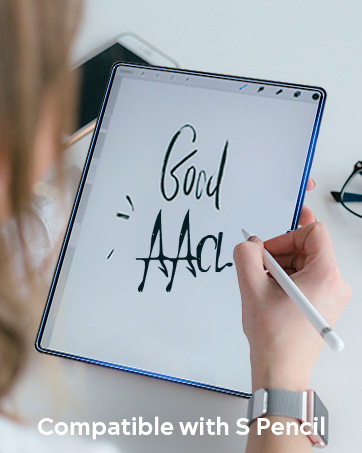 Good
AACL
Compatible with S Pencil